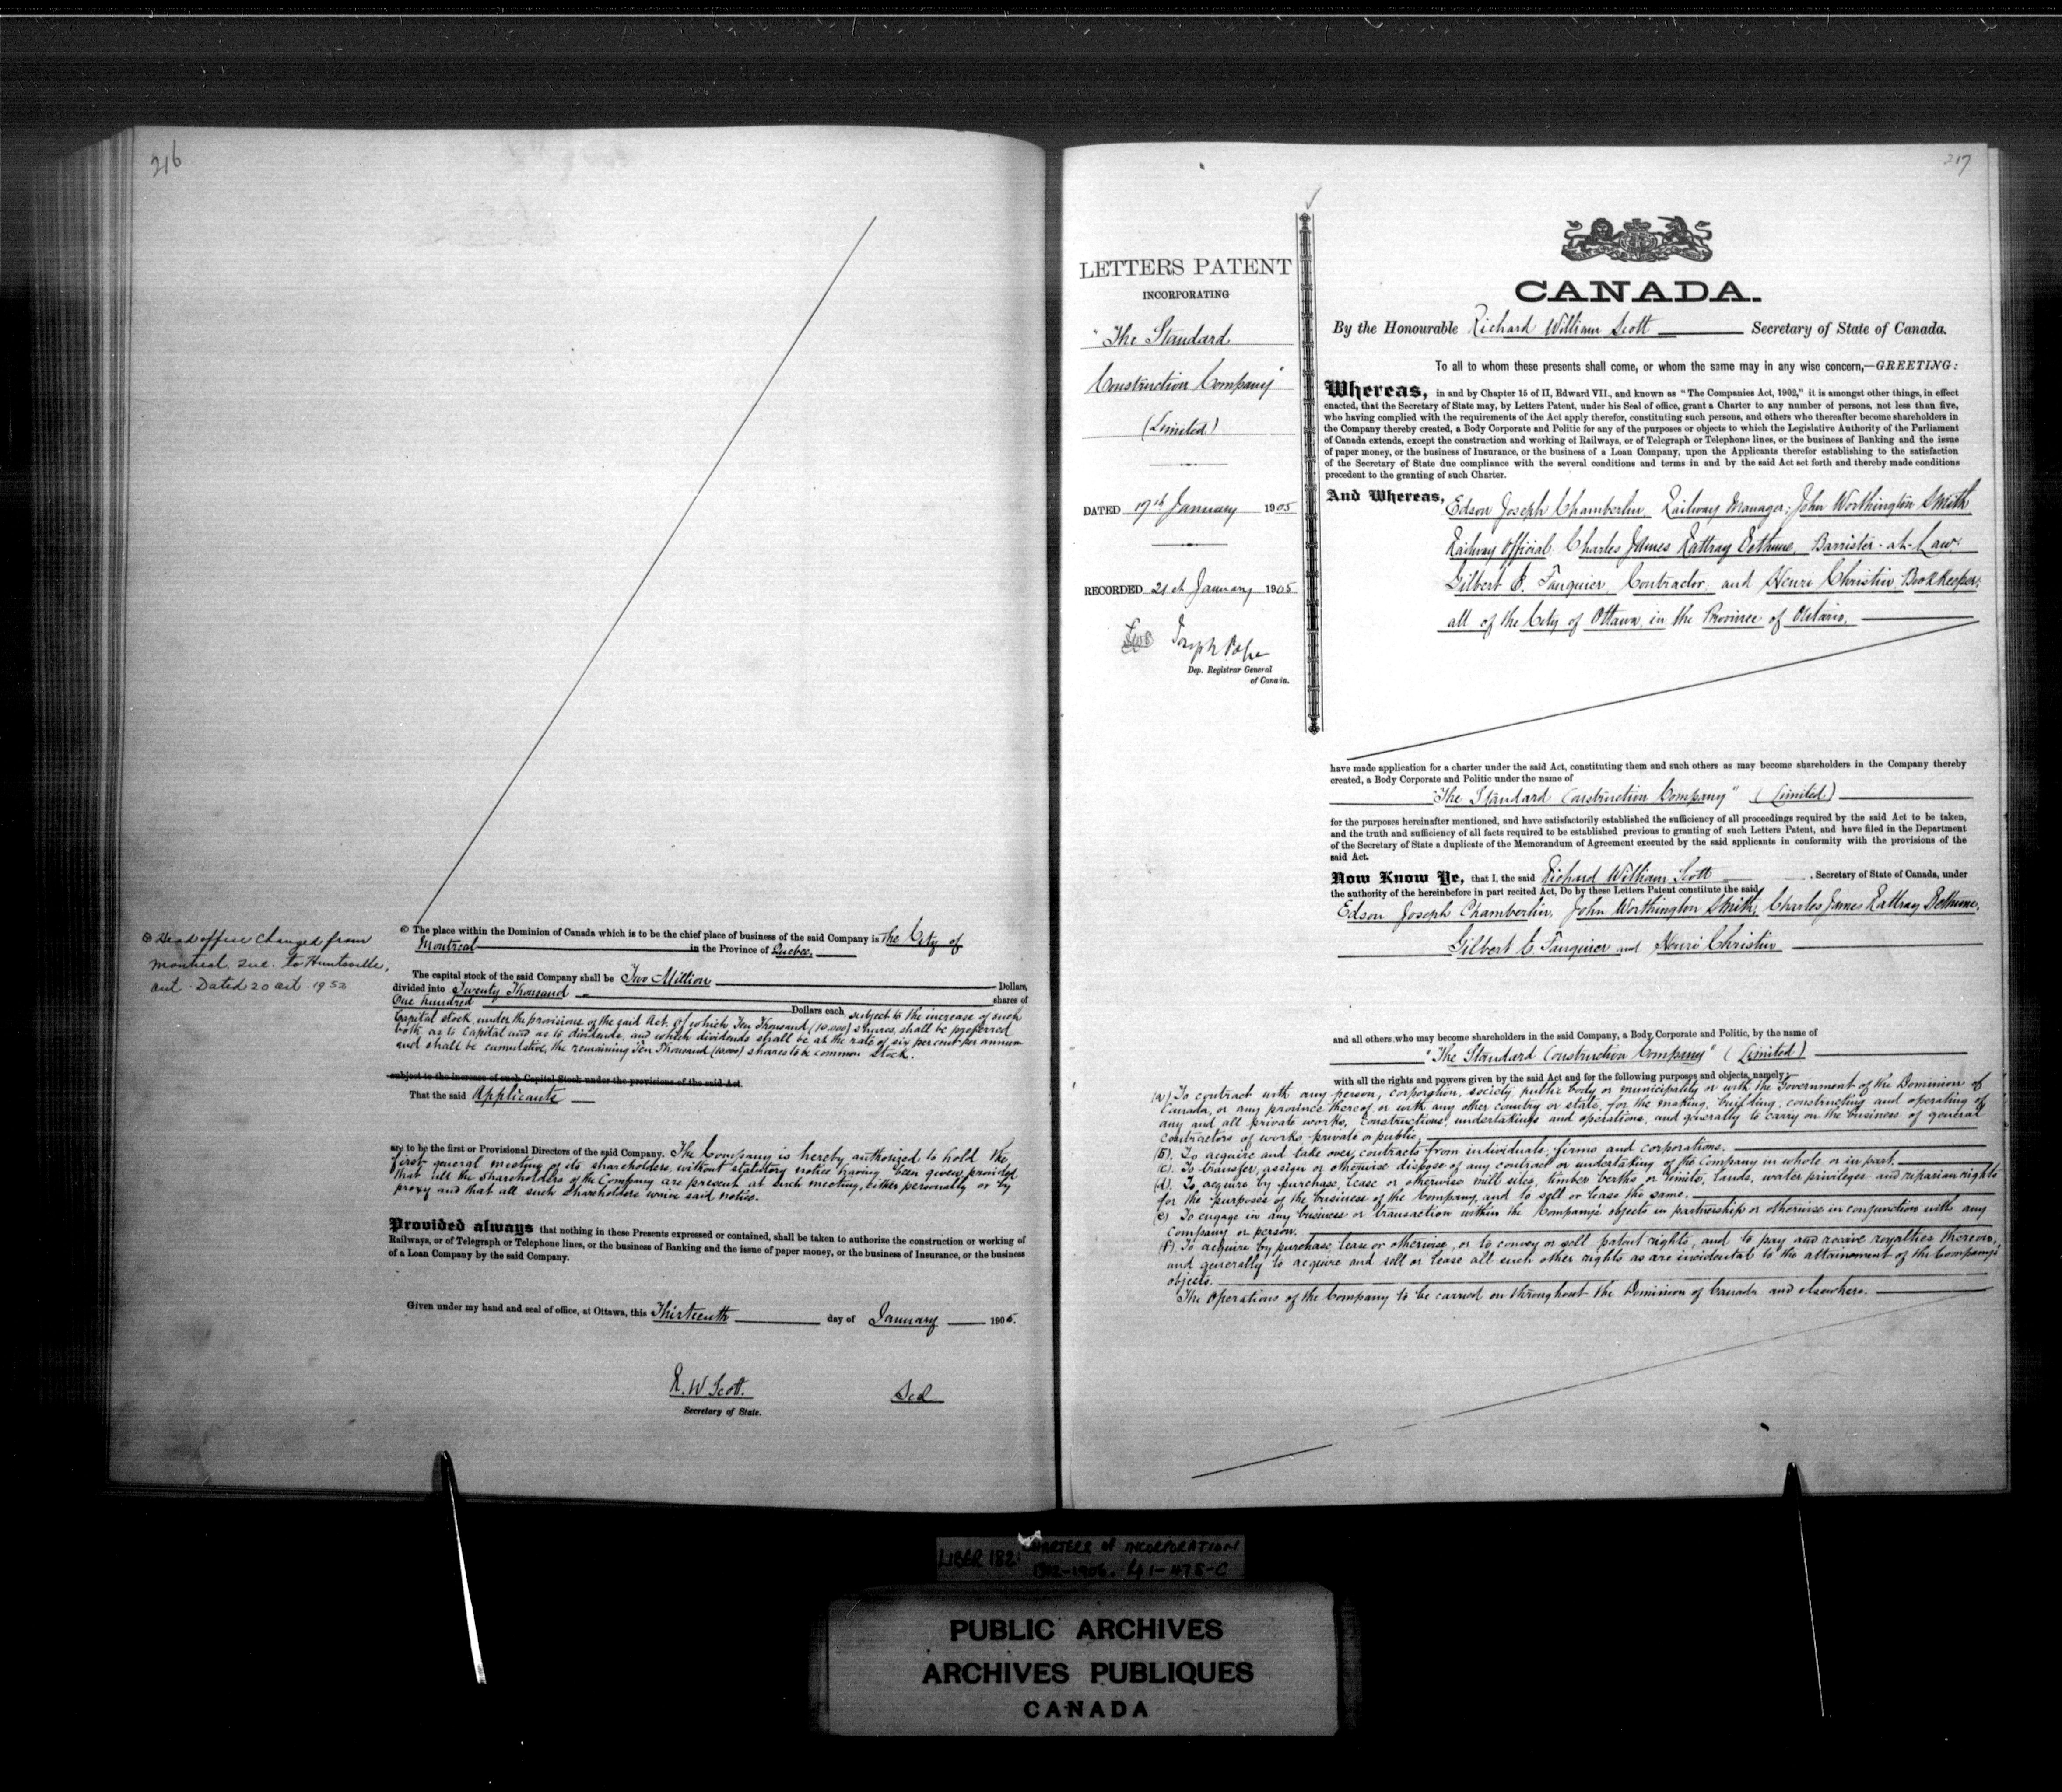 216
© The place within the Dominion of Canada which is to be the chief place of business of the said Company is The City of
Montreal in the Province of Quebec.
Head office changed from
Montreal Que. to Huntsville,
Ont. Dated 20 Oct. 1952
The capital stock of the said Company shall be Two Million Dollars,
divided into Twenty Thousand shares of
One hundred Dollars each subject to the increase of such
Capital stock under the provisions of the said Act. Of which Ten Thousand (10,000) shares shall be preferred
both as to Capital and as to dividends, and which dividends shall be at the rate of six per cent per annum
and shall be cumulative, the remaining Ten Thousand (10,000) shares to be common stock.
subject to the increase of such Capital Stock under the provisions of the said Act
That the said Applicants
are to be the first or Provisional Directors of the said Company. The Company is hereby authorized to hold the
first general meeting of its shareholders, without statutory notice having been given, provided
that all the shareholders of the Company are present at such meeting, either personally or by
proxy and that all such shareholders waive said notice.
Provided always that nothing in these Presents expressed or contained, shall be taken to authorize the construction or working of
Railways, or of Telegraph or Telephone lines, or the business of Banking and the issue of paper money, or the business of Insurance, or the business
of a Loan Company by the said Company.
Given under my hand and seal of office, at Ottawa, this Thirteenth day of January 1905.
R. W. Scott.
Secretary of State.
217
LETTERS PATENT
INCORPORATING
"The Standard
Construction Company"
(Limited)
DATED 17th January 1905
RECORDED 21st January 1905
Joseph Pope
Dep. Registrar General
of Canada.
CANADA.
By the Honourable Richard William Scott Secretary of State of Canada.
To all to whom these presents shall come, or whom the same may in any wise concern,—GREETING:
Whereas, in and by Chapter 15 of II, Edward VII., and known as "The Companies Act, 1902," it is amongst other things, in effect
enacted, that the Secretary of State may, by Letters Patent, under his Seal of office, grant a Charter to any number of persons, not less than five,
who having complied with the requirements of the Act apply therefor, constituting such persons, and others who thereafter become shareholders in
the Company thereby created, a Body Corporate and Politic for any of the purposes or objects to which the Legislative Authority of the Parliament
of Canada extends, except the construction and working of Railways, or of Telegraph or Telephone lines, or the business of Banking and the issue
of paper money, or the business of Insurance, or the business of a Loan Company, upon the Applicants therefor establishing to the satisfaction
of the Secretary of State due compliance with the several conditions and terms in and by the said Act set forth and thereby made conditions
precedent to the granting of such Charter.
And Whereas, Edson Joseph Chamberlin, Railway Manager; John Worthington Smith
Railway Official, Charles James Rattray Bethune, Barrister-at-Law;
Gilbert C. Fauquier, Contractor, and Henri Christin Bookkeeper;
all of the City of Ottawa, in the Province of Ontario,
have made application for a charter under the said Act, constituting them and such others as may become shareholders in the Company thereby
created, a Body Corporate and Politic under the name of
"The Standard Construction Company" (Limited)
for the purposes hereinafter mentioned, and have satisfactorily established the sufficiency of all proceedings required by the said Act to be taken,
and the truth and sufficiency of all facts required to be established previous to granting of such Letters Patent, and have filed in the Department
of the Secretary of State a duplicate of the Memorandum of Agreement executed by the said applicants in conformity with the provisions of the
said Act.
Now Know Ye, that I, the said Richard William Scott , Secretary of State of Canada, under
the authority of the hereinbefore in part recited Act, Do by these Letters Patent constitute the said
Edson Joseph Chamberlin, John Worthington Smith, Charles James Rattray Bethune,
Gilbert C. Fauquier and Henri Christin
and all others who may become shareholders in the said Company, a Body Corporate and Politic, by the name of
"The Standard Construction Company" (Limited)
with all the rights and powers given by the said Act and for the following purposes and objects, namely:
(a) To contract with any person, corporation, society, public body or municipality or with the Government of the Dominion of
Canada, or any province thereof, or with any other country or state, for the making, building, constructing and operating of
any and all private works, constructions, undertakings and operations, and generally to carry on the business of general
contractors of works, private or public.
(b). To acquire and take over contracts from individuals, firms and corporations.
(c). To transfer, assign or otherwise dispose of any contract or undertaking of the Company in whole or in part.
(d). To acquire by purchase, lease or otherwise mill sites, timber berths or limits, lands, water privileges and riparian rights
for the purposes of the business of the Company, and to sell or lease the same.
(e) To engage in any business or transaction within the Company's objects in partnership or otherwise in conjunction with any
Company or person.
(f). To acquire by purchase, lease or otherwise, or to convey or sell patent rights, and to pay and receive royalties thereon,
and generally to acquire and sell or lease all such other rights as are incidental to the attainment of the Company's
objects.
The Operations of the Company to be carried on throughout the Dominion of Canada and elsewhere.
LIBER 182: CHARTERS of INCORPORATION
1902-1906.
PUBLIC ARCHIVES
ARCHIVES PUBLIQUES
CANADA